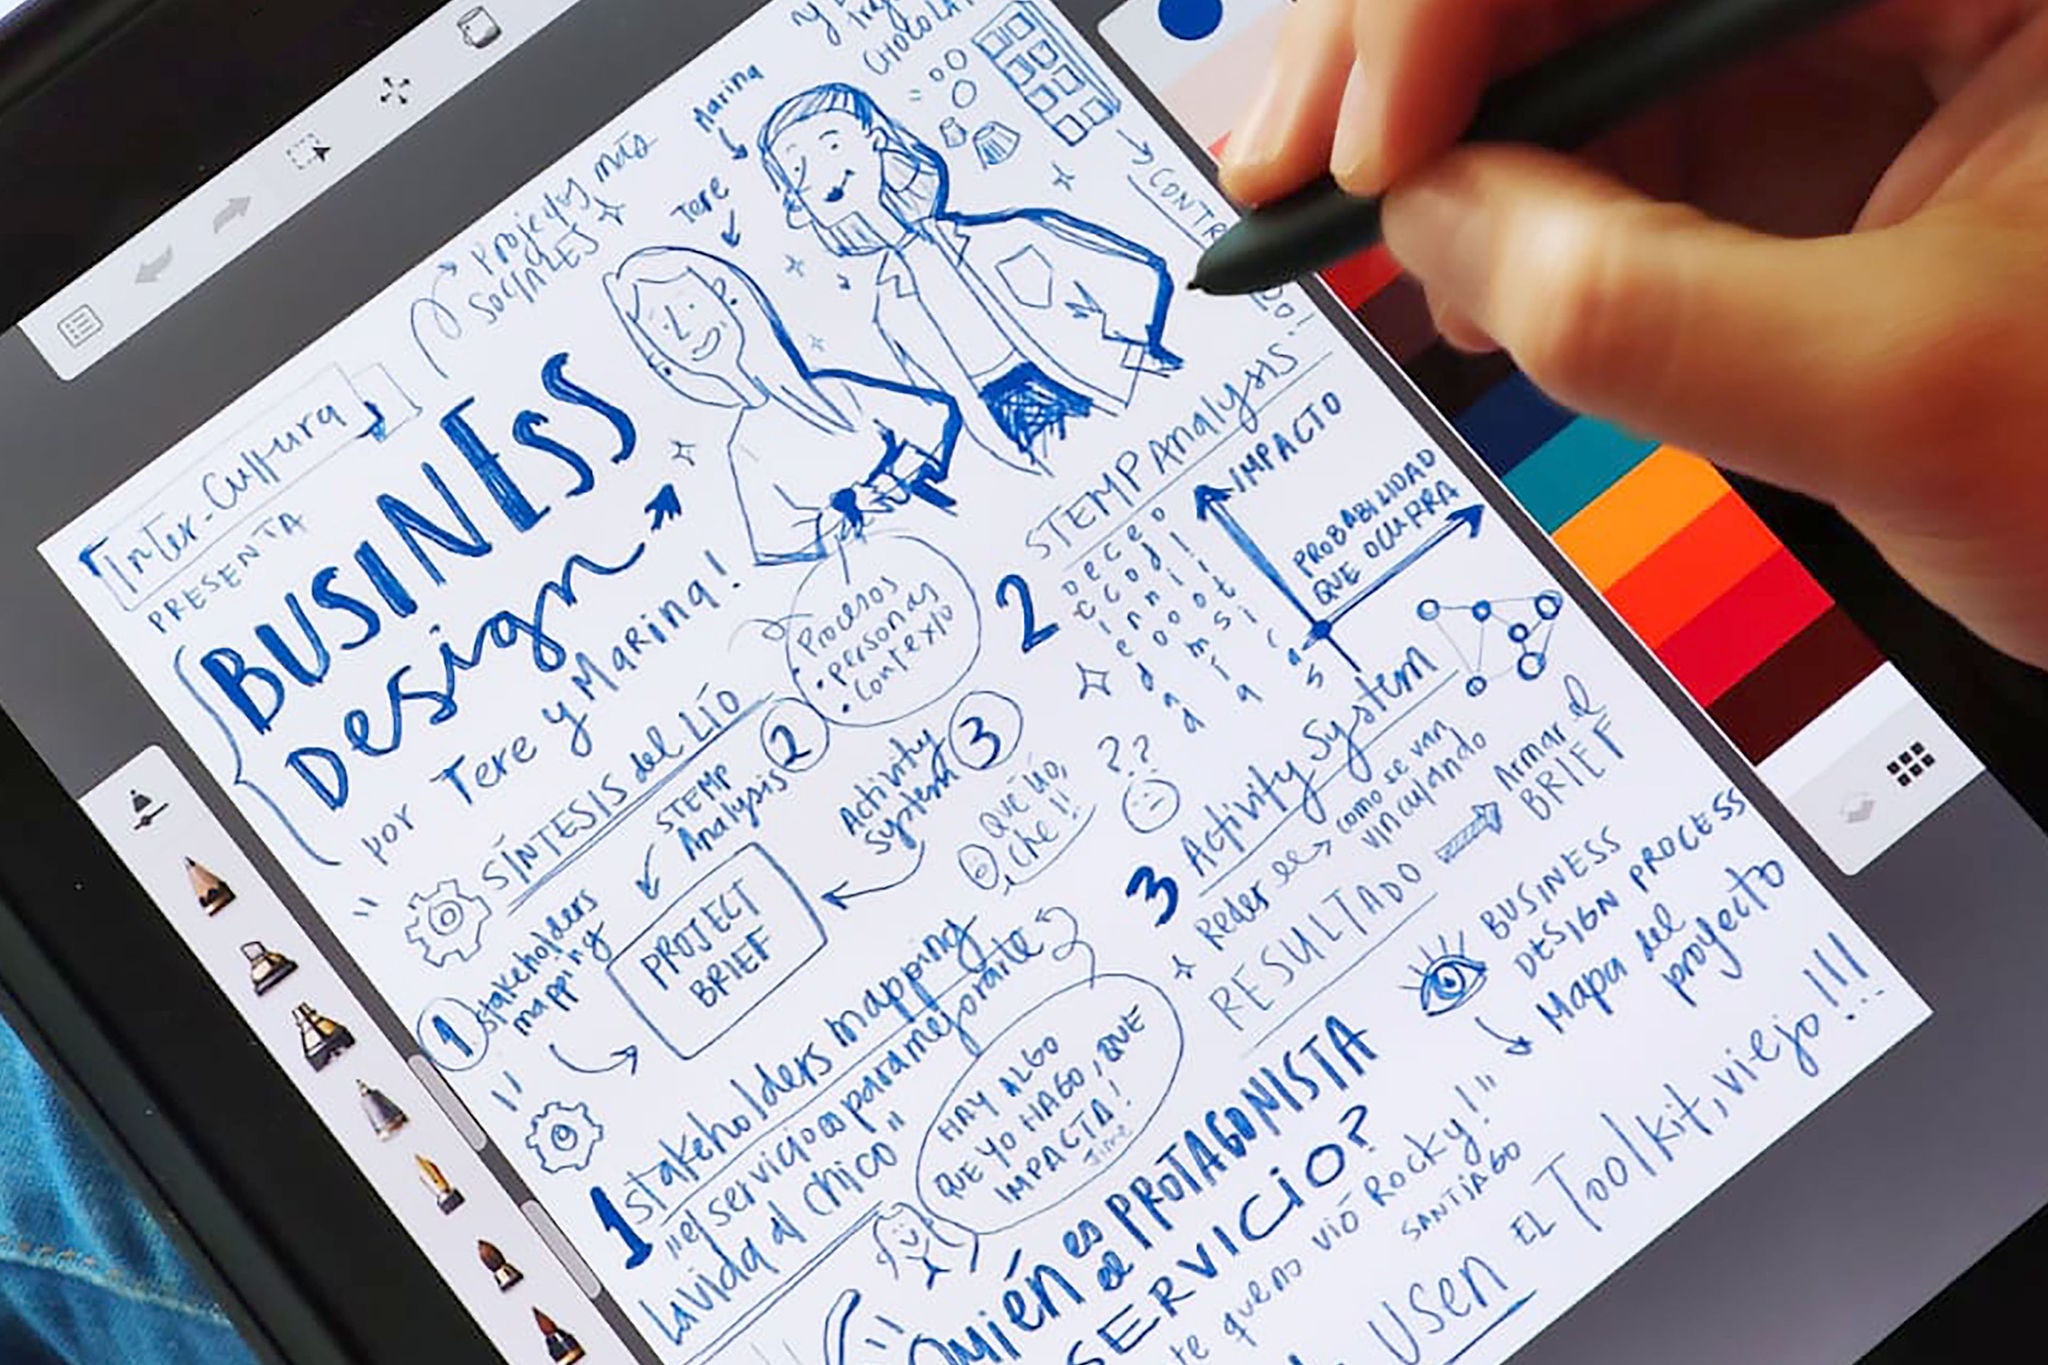 Inter-Cultura
PRESENTA
BUSINESS
Design
por Tere y Marina!
Proyectos más
SOCIALES
Tere
Marina
SÍNTESIS del LÍO
Procesos
• personas
• contexto
1 stakeholders
mapping
STEMP
Analysis 2
Activity
System 3
PROJECT
BRIEF
Que lío,
che!!
??
1 stakeholders mapping
"el servicio es para mejorarle
la vida al chico"
HAY ALGO
QUE YO HAGO, QUE
IMPACTA!
Jime
Quién es PROTAGONISTA
el SERVICIO?
te que no vió Rocky!"
SANTIAGO
Usen EL Toolkit, viejo!!!
2 STEMP Analysis
IMPACTO
PROBABILIDAD
QUE OCURRA
3 Activity System
Redes
como se van
vinculando
RESULTADO
Armar el
BRIEF
BUSINESS
DESIGN PROCESS
Mapa del
proyecto